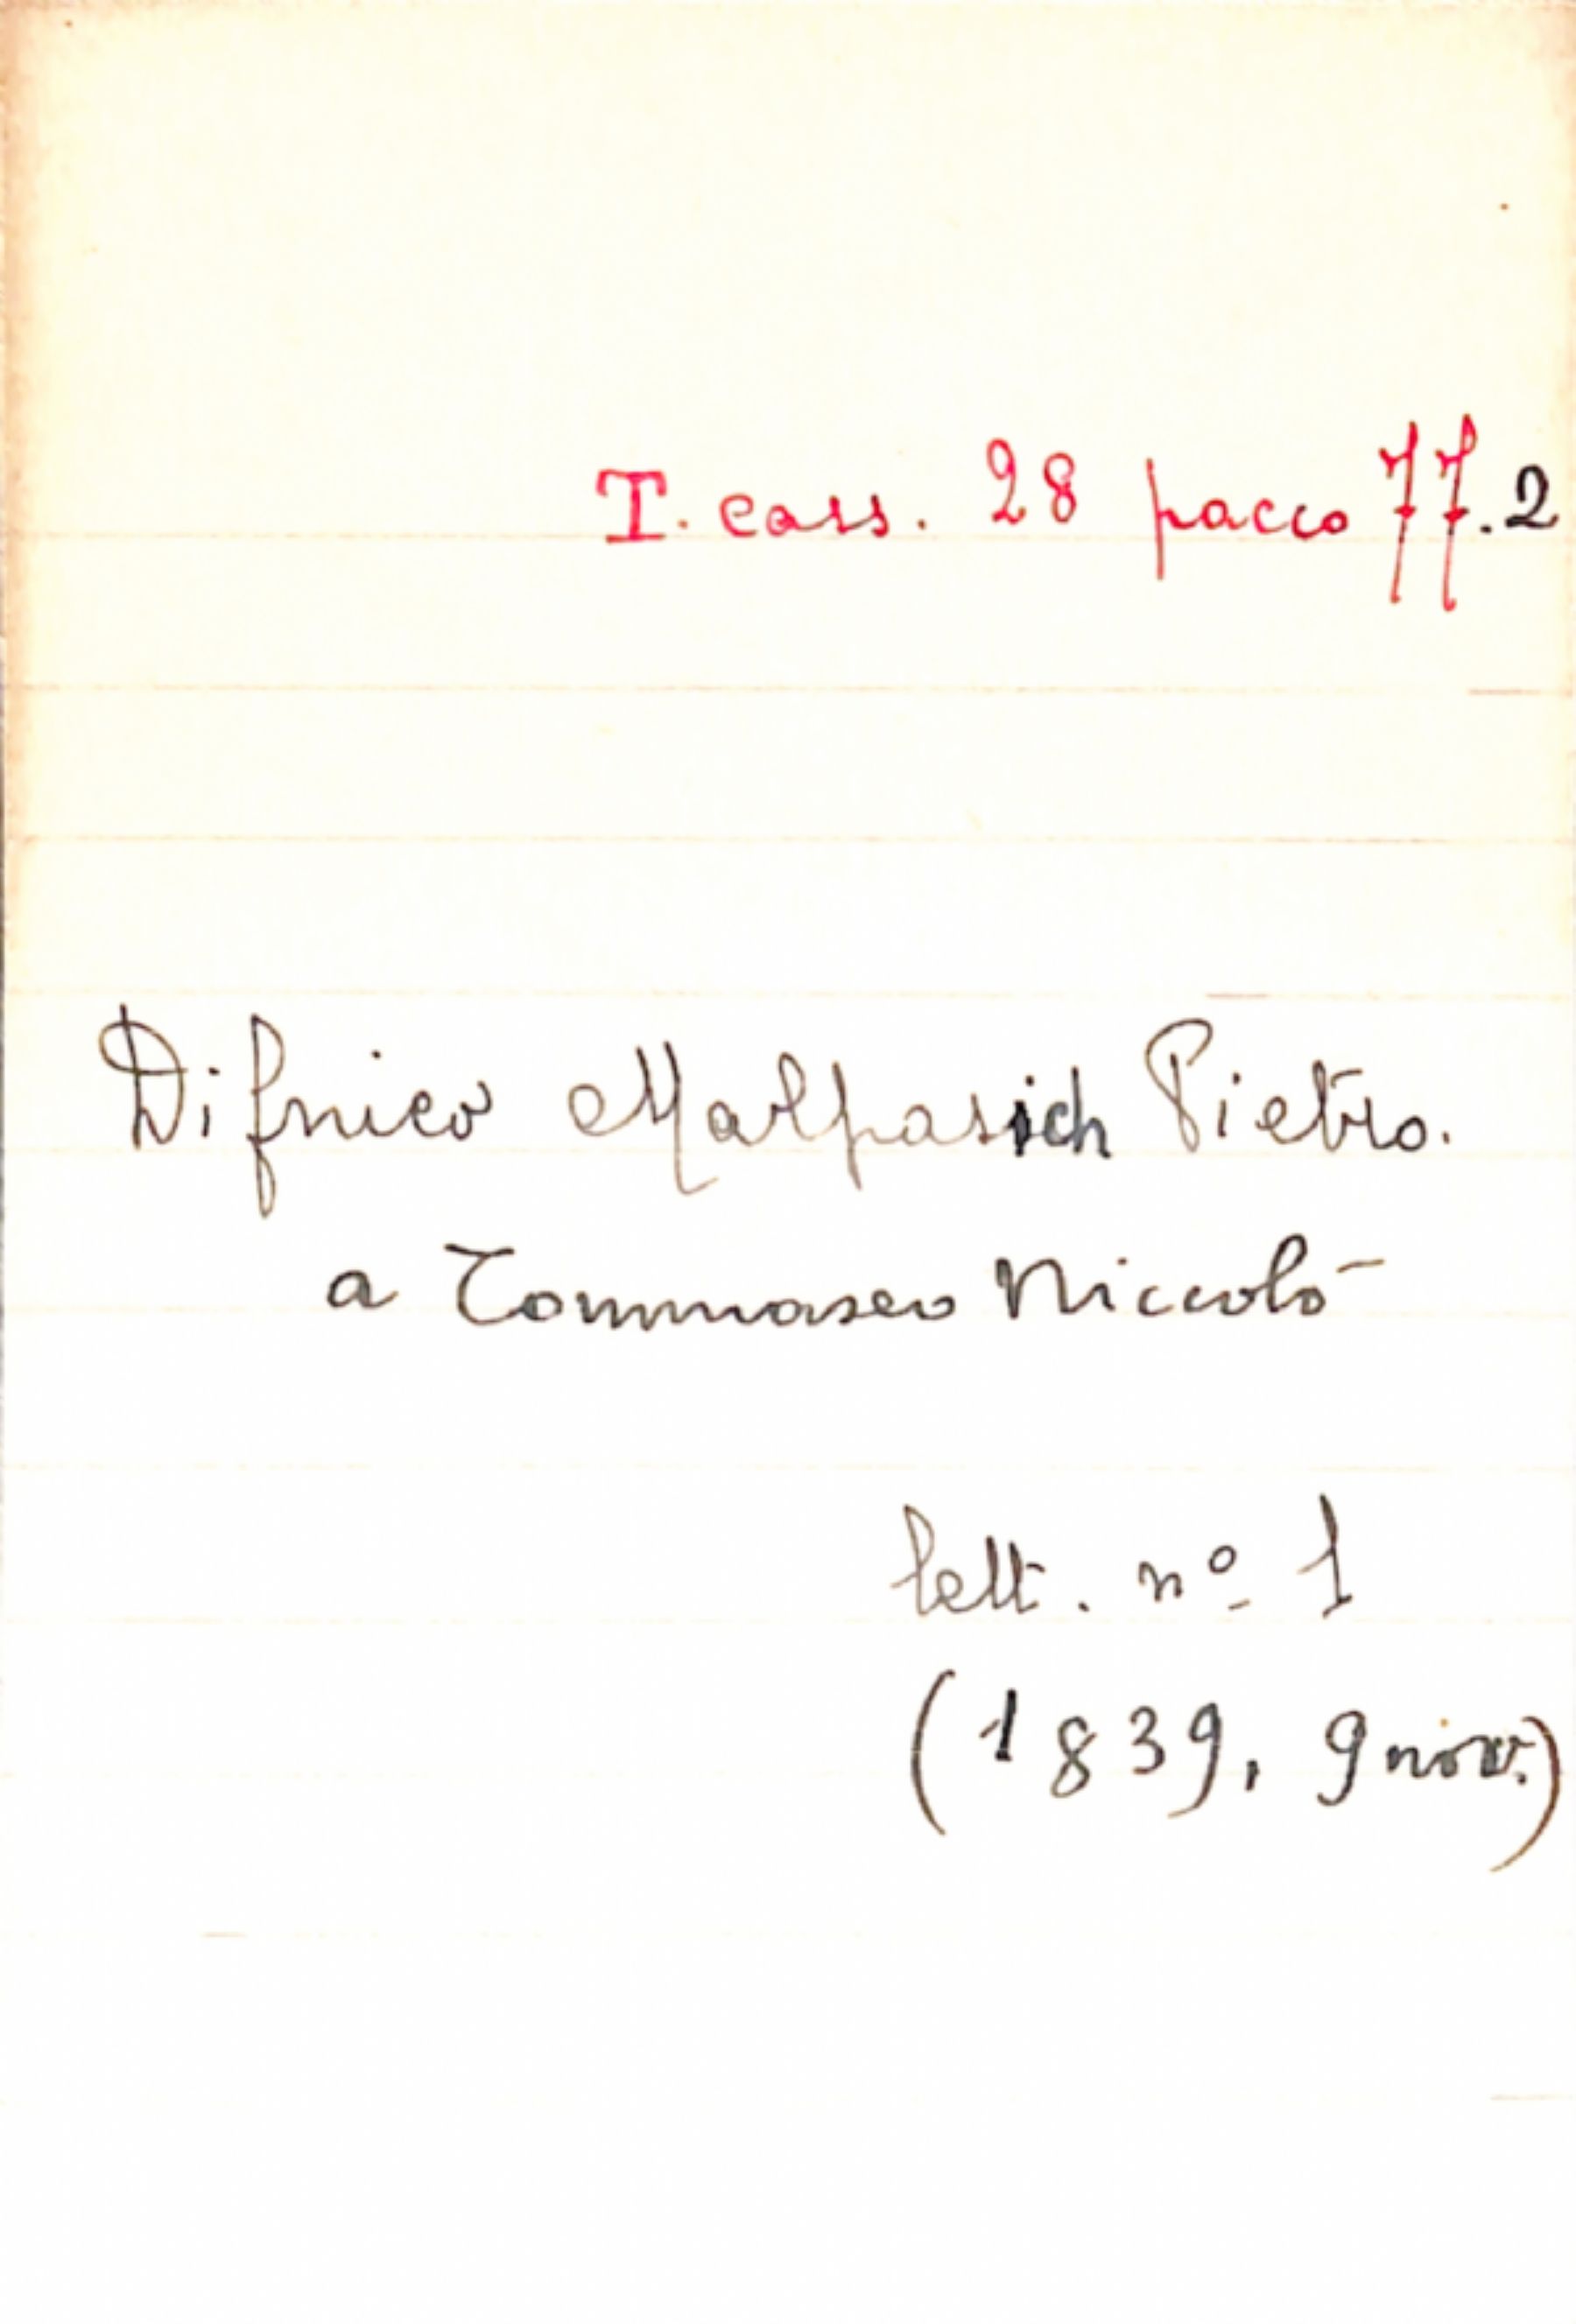 T. cass. 28 pacco 77.2
Difnico Malpasich Pietro.
a Tommaseo Niccolò
lett. nº 1
(1839, 9 nov.)